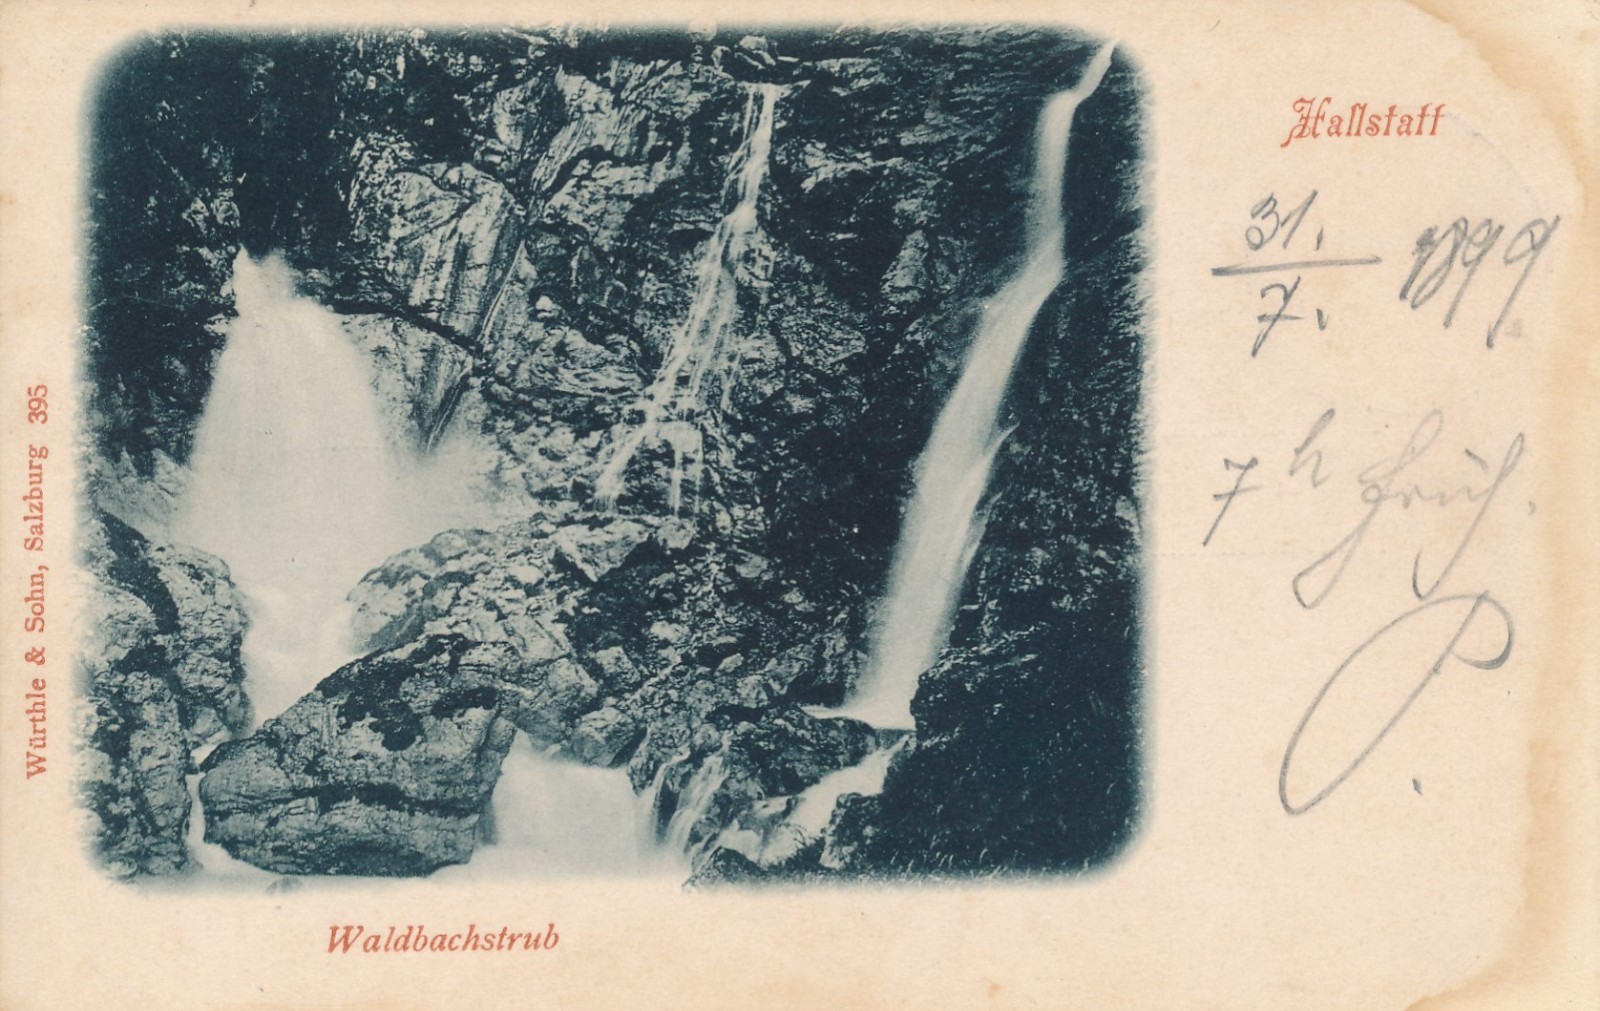 Hallstatt
31.
7. 1899
7 h früh.
P.
Würthle & Sohn, Salzburg 395
Waldbachstrub